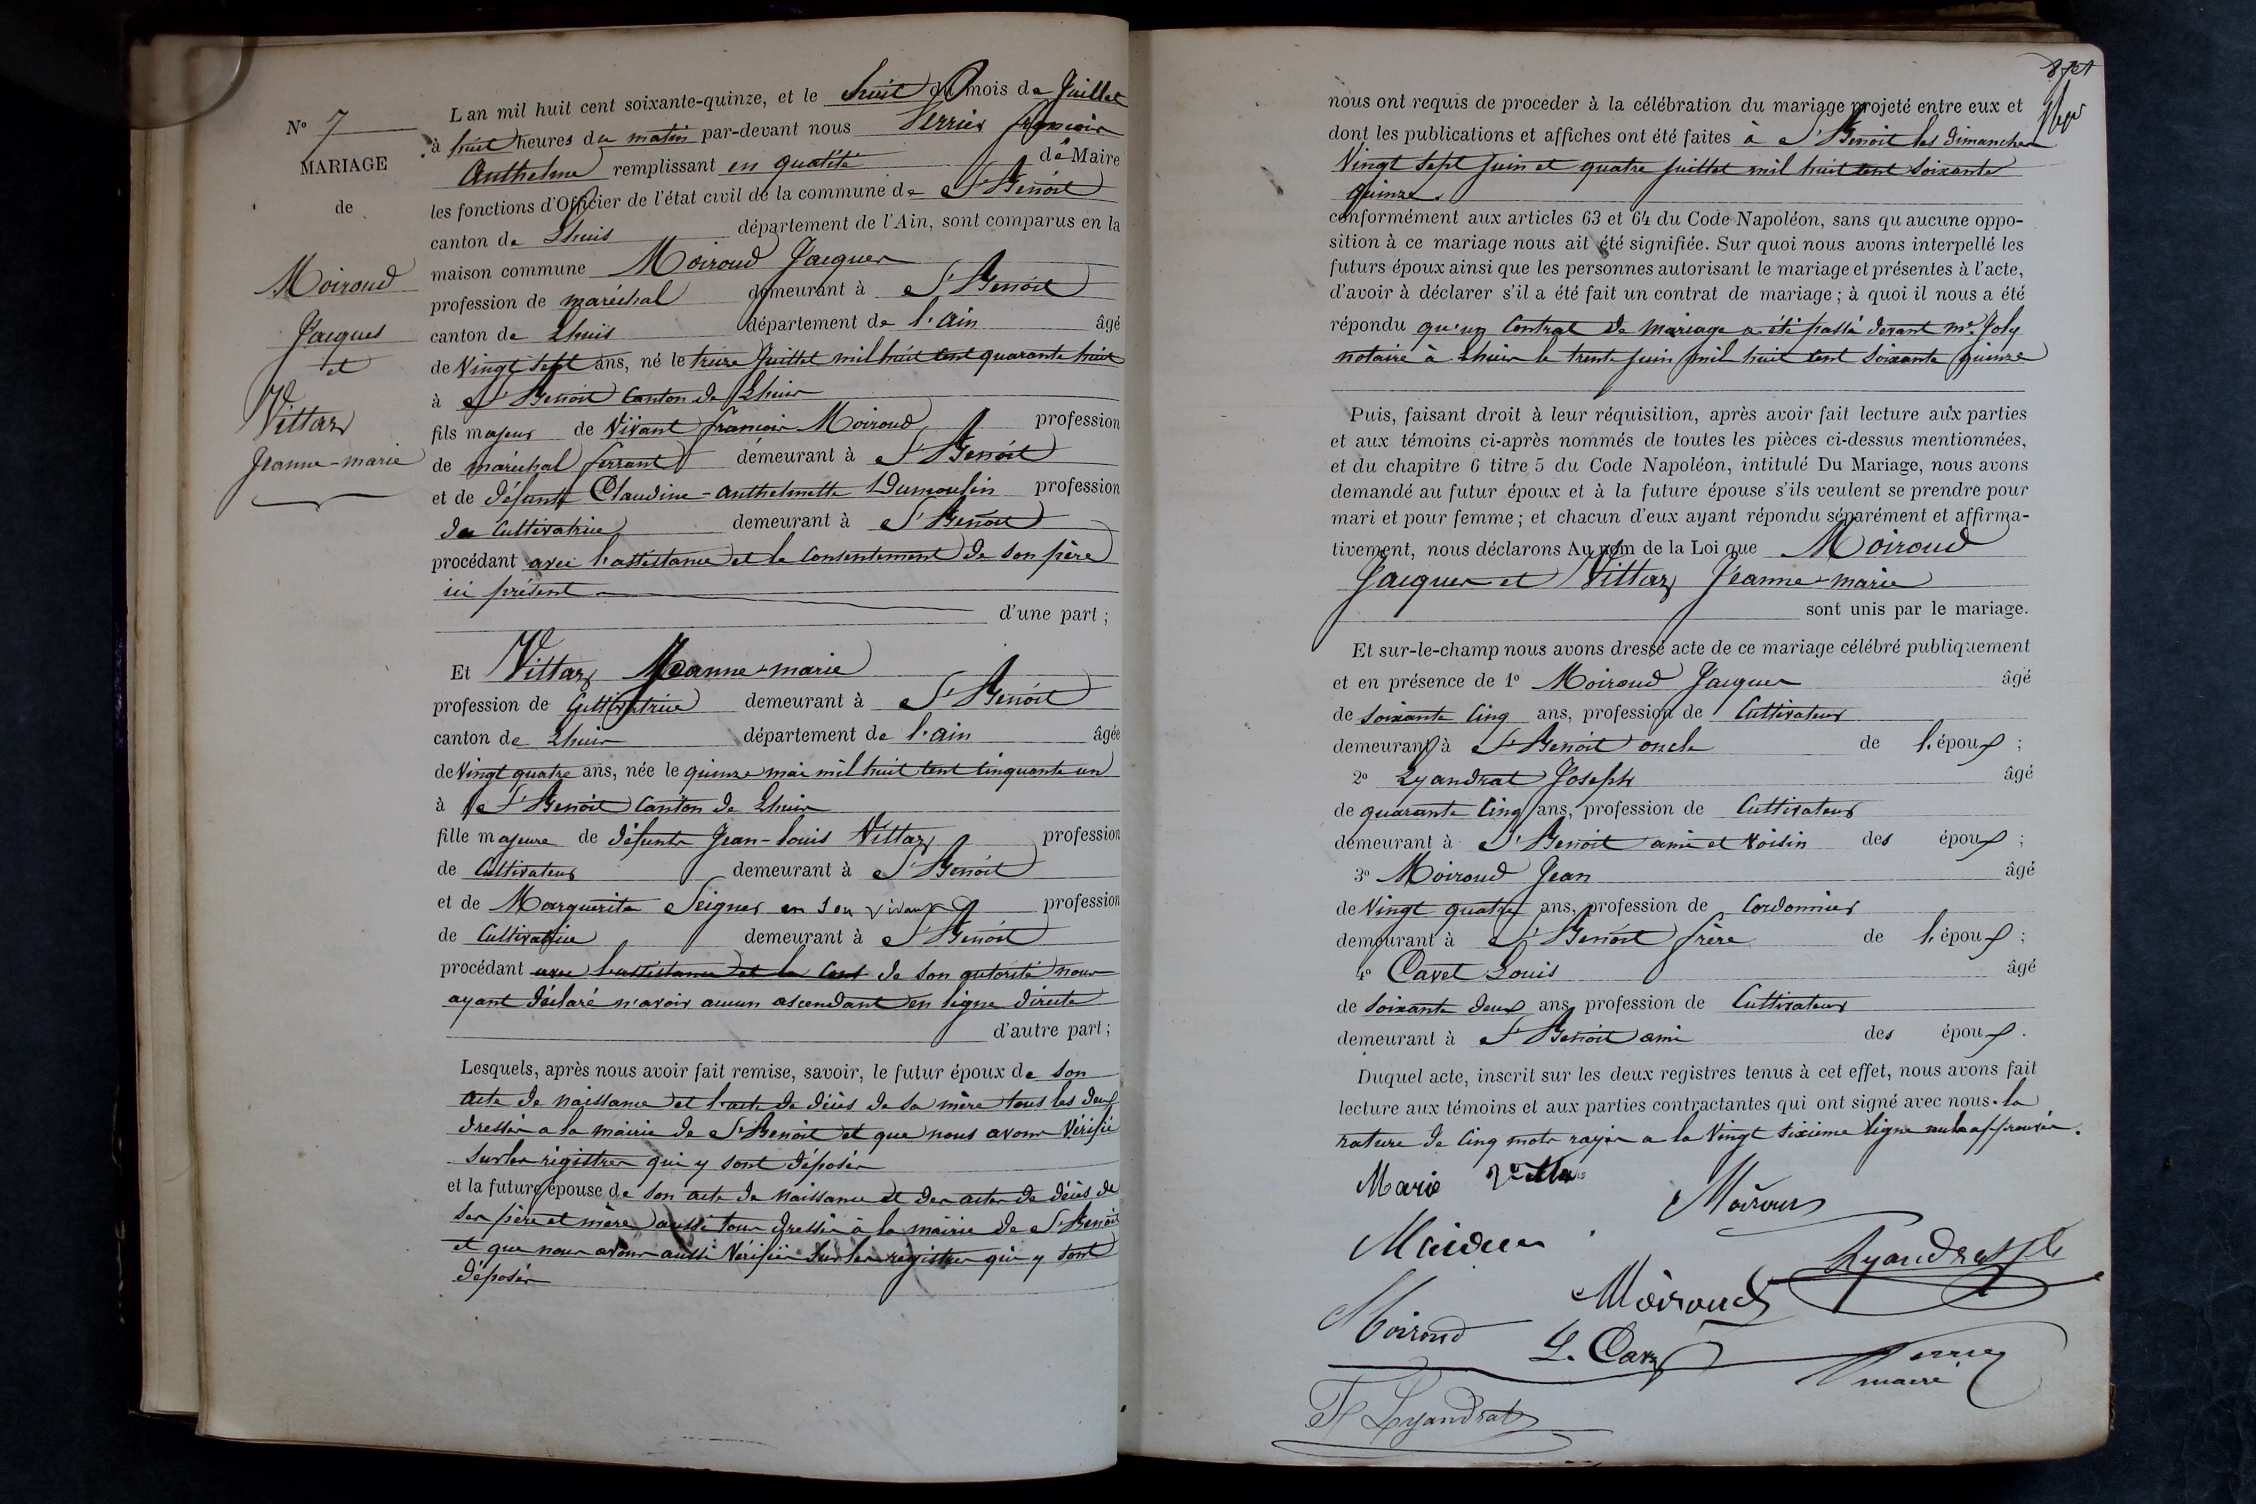 N° 7
MARIAGE
de
Moiroud
Jacques
et
Vittaz
Jeanne-marie
L'an mil huit cent soixante-quinze, et le huit du mois de Juillet
à huit heures du matin par-devant nous Perrier françois
Anthelme remplissant en qualité de Maire
les fonctions d'Officier de l'état civil de la commune de St Benoit
canton de Lhuis département de l'Ain, sont comparus en la
maison commune Moiroud Jacques
profession de maréchal demeurant à St Benoit
canton de Lhuis département de l'ain âgé
de Vingt sept ans, né le treize Juillet mil huit cent quarante huit
à St Benoit Canton de Lhuis
fils majeur de Vivant françois Moiroud profession
de maréchal ferrant demeurant à St Benoit
et de défunte Claudine-anthelmette Dumoulin profession
de Cultivatrice demeurant à St Benoit
procédant avec l'assistance et le Consentement de son père
ici présent
d'une part ;
Et Vittaz Jeanne-marie
profession de Cultivatrice demeurant à St Benoit
canton de Lhuis département de l'ain âgée
de Vingt quatre ans, née le quinze mai mil huit cent cinquante un
à St Benoit Canton de Lhuis
fille majeure de défunts Jean-Louis Vittaz profession
de Cultivateur demeurant à St Benoit
et de Marguerite Seigner en son vivant profession
de Cultivatrice demeurant à St Benoit
procédant avec l'assistance et le Cons de son autorité nous
ayant déclaré n'avoir aucun ascendant en ligne directe
d'autre part ;
Lesquels, après nous avoir fait remise, savoir, le futur époux de son
acte de naissance et l'acte de décès de sa mère tous les deux
dressés a la mairie de St Benoit et que nous avons Vérifié
sur les régistres qui y sont déposés
et la future épouse de son acte de naissance et des actes de décès de
ses père et mère aussi tous dressés à la mairie de St Benoit
et que nous avons aussi Vérifiés sur les régistres qui y sont
déposés
nous ont requis de procéder à la célébration du mariage projeté entre eux et
dont les publications et affiches ont été faites à St Benoit les dimanches
Vingt sept Juin et quatre Juillet mil huit cent soixante
quinze.
conformément aux articles 63 et 64 du Code Napoléon, sans qu'aucune oppo-
sition à ce mariage nous ait été signifiée. Sur quoi nous avons interpellé les
futurs époux ainsi que les personnes autorisant le mariage et présentes à l'acte,
d'avoir à déclarer s'il a été fait un contrat de mariage ; à quoi il nous a été
répondu qu'un Contrat de Mariage a été passé devant me Joly
notaire à Lhuis le trente Juin mil huit cent soixante quinze
Puis, faisant droit à leur réquisition, après avoir fait lecture aux parties
et aux témoins ci-après nommés de toutes les pièces ci-dessus mentionnées,
et du chapitre 6 titre 5 du Code Napoléon, intitulé Du Mariage, nous avons
demandé au futur époux et à la future épouse s'ils veulent se prendre pour
mari et pour femme ; et chacun d'eux ayant répondu séparément et affirma-
tivement, nous déclarons Au nom de la Loi que Moiroud
Jacques et Vittaz Jeanne-marie
sont unis par le mariage.
Et sur-le-champ nous avons dressé acte de ce mariage célébré publiquement
et en présence de 1° Moiroud Jacques âgé
de soixante Cinq ans, profession de Cultivateur
demeurant à St Benoit oncle de l'époux ;
2° Lyandrat Joseph âgé
de quarante Cinq ans, profession de Cultivateur
demeurant à St Benoit ami et voisin des époux ;
3° Moiroud Jean âgé
de Vingt quatre ans, profession de Cordonnier
demeurant à St Benoit frère de l'époux ;
4° Cavet Louis âgé
de soixante deux ans, profession de Cultivateur
demeurant à St Benoit ami des époux .
Duquel acte, inscrit sur les deux registres tenus à cet effet, nous avons fait
lecture aux témoins et aux parties contractantes qui ont signé avec nous. la
rature de Cinq mots rayés a la Vingt sixième ligne nuls approuvés.
Marie
Moiroud
Lyandrat
Moiroud
Moiroud
L. Cavet
Perrier
maire
Lyandrat